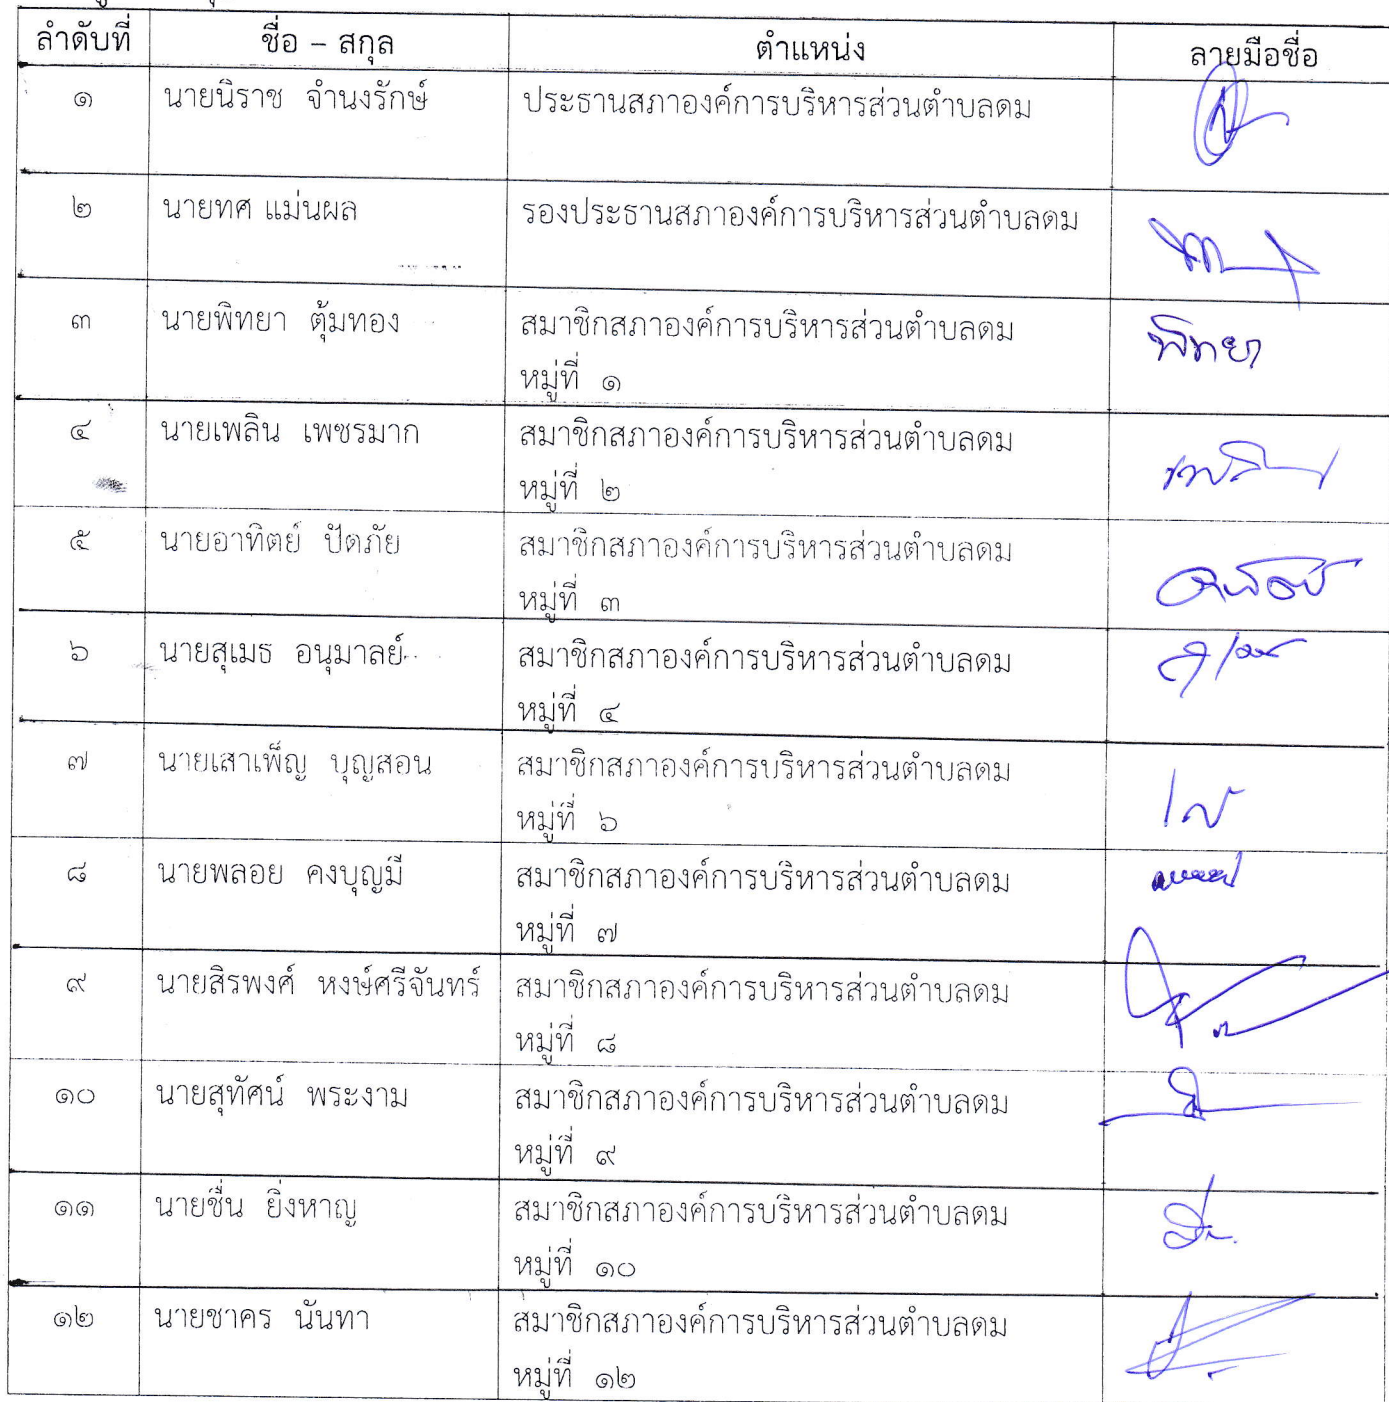 ลำดับที่ ชื่อ – สกุล ตำแหน่ง ลายมือชื่อ
๑ นายนิราช จำนงรักษ์ ประธานสภาองค์การบริหารส่วนตำบลดม
๒ นายทศ แม่นผล รองประธานสภาองค์การบริหารส่วนตำบลดม
๓ นายพิทยา ตุ้มทอง สมาชิกสภาองค์การบริหารส่วนตำบลดม พิทยา
หมู่ที่ ๑
๔ นายเพลิน เพชรมาก สมาชิกสภาองค์การบริหารส่วนตำบลดม
หมู่ที่ ๒
๕ นายอาทิตย์ ปัดภัย สมาชิกสภาองค์การบริหารส่วนตำบลดม
หมู่ที่ ๓
๖ นายสุเมธ อนุมาลย์ สมาชิกสภาองค์การบริหารส่วนตำบลดม
หมู่ที่ ๔
๗ นายเสาเพ็ญ บุญสอน สมาชิกสภาองค์การบริหารส่วนตำบลดม
หมู่ที่ ๖
๘ นายพลอย คงบุญมี สมาชิกสภาองค์การบริหารส่วนตำบลดม
หมู่ที่ ๗
๙ นายสิรพงศ์ หงษ์ศรีจันทร์ สมาชิกสภาองค์การบริหารส่วนตำบลดม
หมู่ที่ ๘
๑๐ นายสุทัศน์ พระงาม สมาชิกสภาองค์การบริหารส่วนตำบลดม
หมู่ที่ ๙
๑๑ นายชื่น ยิ่งหาญ สมาชิกสภาองค์การบริหารส่วนตำบลดม
หมู่ที่ ๑๐
๑๒ นายชาคร นันทา สมาชิกสภาองค์การบริหารส่วนตำบลดม
หมู่ที่ ๑๒